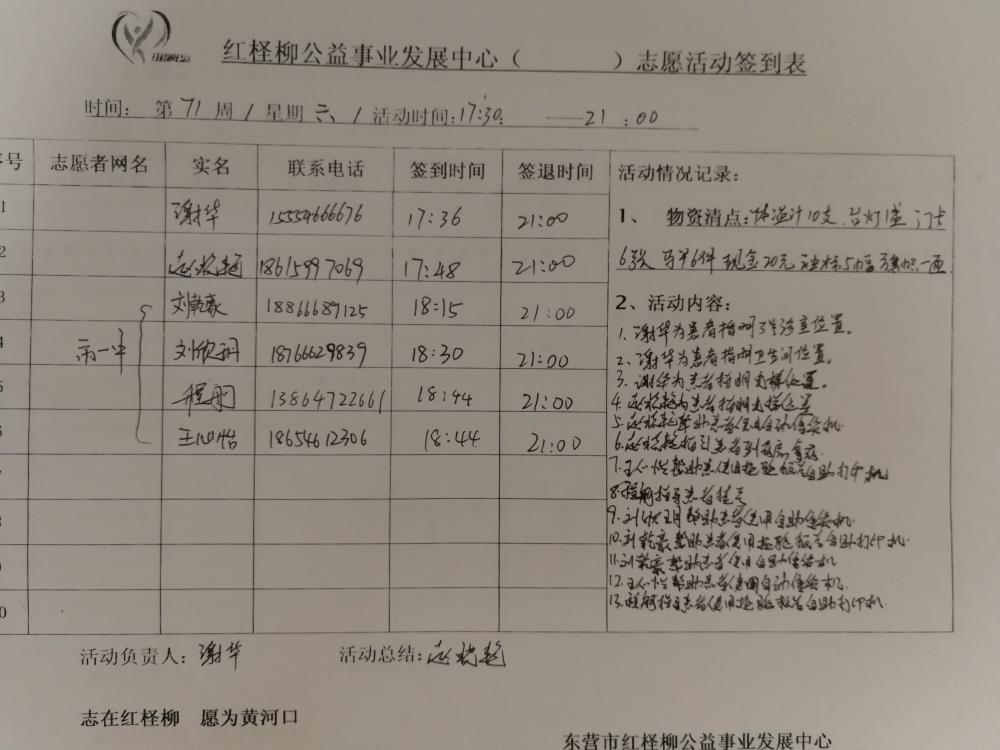 红柽柳公益事业发展中心（ ）志愿活动签到表
时间： 第 71 周 / 星期 六 / 活动时间:17:30: —— 21 : 00
序号 志愿者网名 实名 联系电话 签到时间 签退时间 活动情况记录:
1 谢华 15554666676 17:36 21:00
1、 物资清点: 体温计10支、台灯1盏 门卡
2 18615997069 17:48 21:00
6张 马甲6件 现金20元
3 刘乾豪 18866689125 18:15 21:00
2、活动内容:
1、谢华为患者指明 诊室位置。
4 市一中 刘欣玥 18766629839 18:30 21:00
2、谢华为患者指明卫生间位置。
3、谢华为患者指明 位置。
5 程舸 13864722661 18:44 21:00
4、 为患者指明 位置
5. 帮助患者使用自动售货机
6 王心怡 18654612306 18:44 21:00
6. 指引患者到药房拿药
7.王心怡帮助患者使用检验报告自助打印机
8.程舸指导患者挂号
9.刘欣玥帮助患者使用自助售货机
10.刘乾豪帮助患者使用检验报告自助打印机
11.刘乾豪帮助患者使用自助售货机
12.王心怡帮助患者使用自动售货机.
13.程舸指导患者使用检验报告自助打印机
活动负责人: 谢华 活动总结:
志在红柽柳 愿为黄河口
东营市红柽柳公益事业发展中心